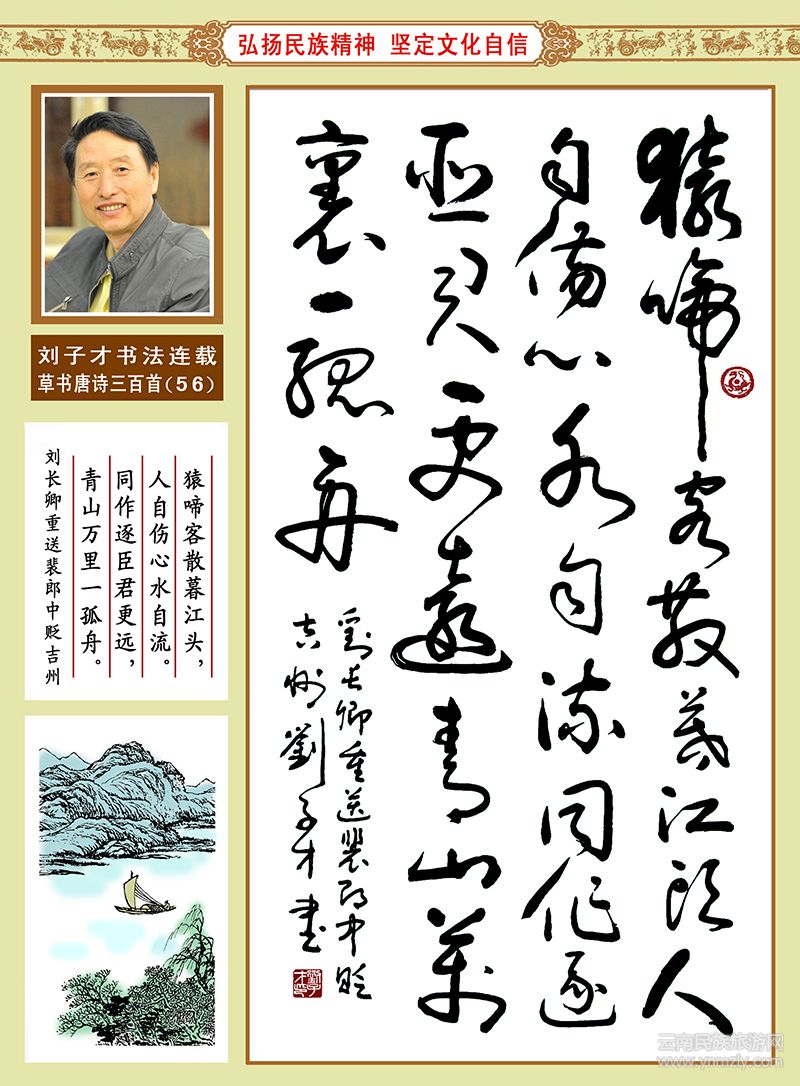 弘扬民族精神 坚定文化自信
刘子才书法连载
草书唐诗三百首(56)
猿啼客散暮江头，
人自伤心水自流。
同作逐臣君更远，
青山万里一孤舟。
刘长卿重送裴郎中贬吉州
猿啼客散暮江头人
自伤心水自流同作逐
臣君更远青山万
里一孤舟
劉长卿重送裴郎中贬
吉州劉子才书
云南民族旅游网
www.ynmzly.com